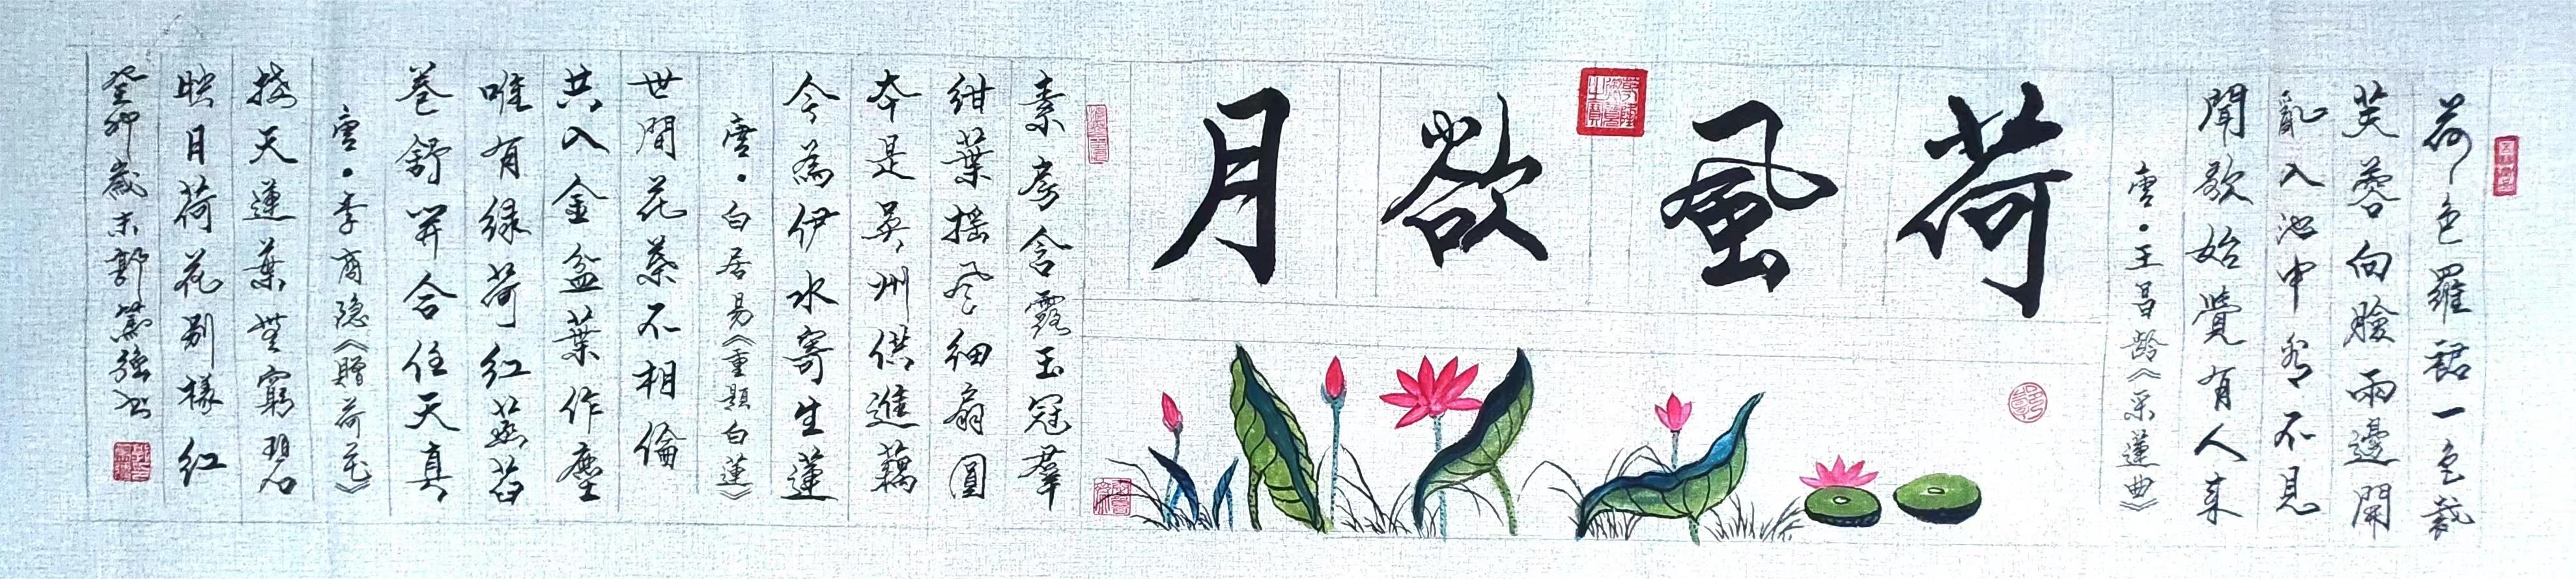 荷色羅裙一色裁
芙蓉向臉兩邊開
亂入池中看不見
聞歌始覺有人來
唐•王昌齡《采蓮曲》
荷風欲月
素房含露玉冠羣
紺葉搖風細扇圓
本是吳州供進藕
今為伊水寄生蓮
唐•白居易《重題白蓮》
世間花葉不相倫
共入金盆葉作塵
唯有綠荷紅菡萏
卷舒開合任天真
唐•李商隐《贈荷花》
接天蓮葉無窮碧
映日荷花別樣紅
癸卯歲末郭強书